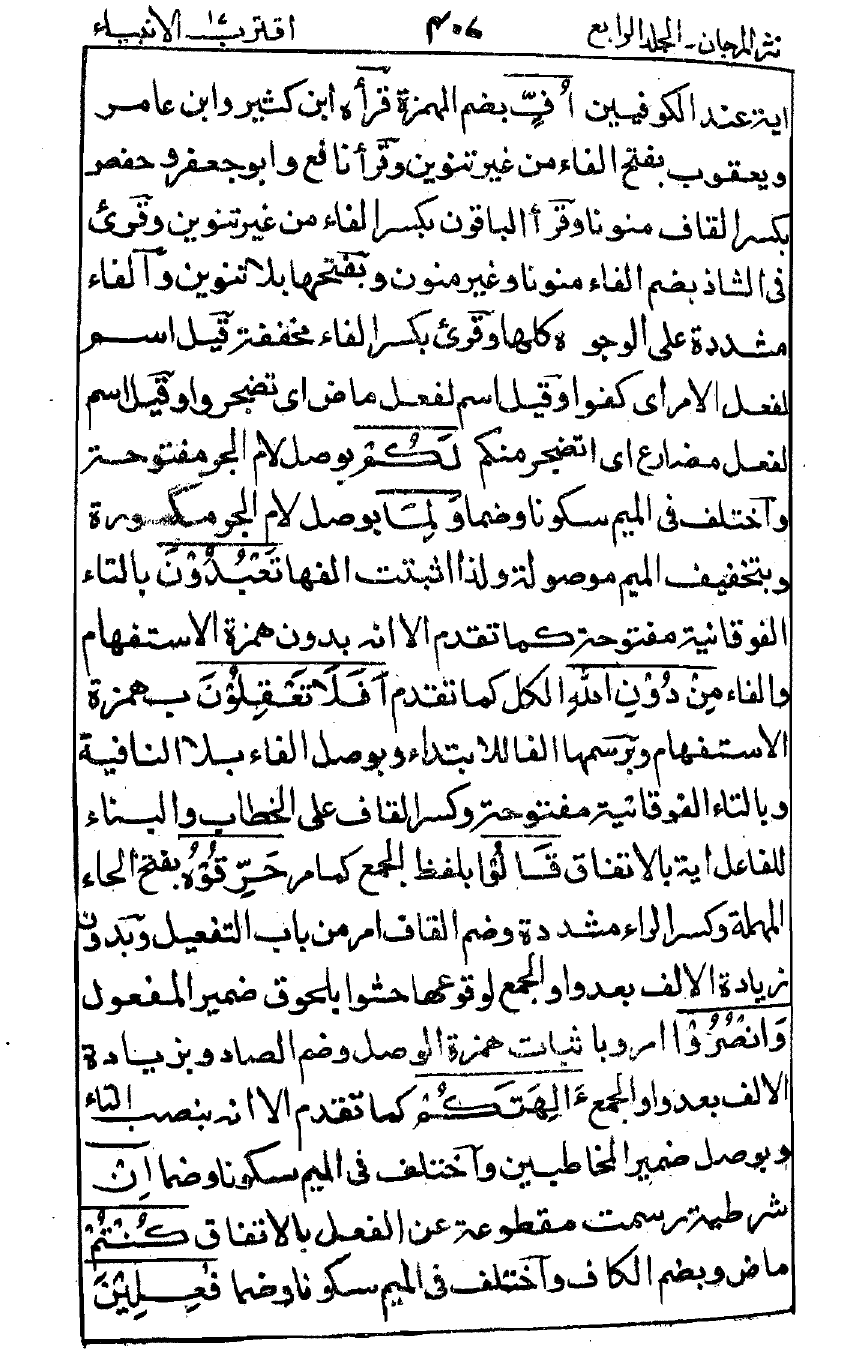 نثر المرجان - المجلد الرابع ٤٠٦ اقترب ١٧ الانبياء
اية عند الكوفيين اُفٍّ بضم الهمزة قرأه ابن كثير وابن عامر
ويعقوب بفتح الفاء من غير تنوين وقرأ نافع وابو جعفر وحفص
بكسر القاف منونا وقرأ الباقون بكسر الفاء من غير تنوين وقرئ
فى الشاذ بضم الفاء منونا وغير منون وبفتحها بلا تنوين والفاء
مشددة على الوجوه كلها وقرئ بكسر الفاء مخففة قيل اسم
لفعل الامر اى كفوا وقيل اسم لفعل ماض اى تضجروا وقيل اسم
لفعل مضارع اى اتضجر منكم لَكُمْ بوصل لام الجر مفتوحة
واختلف فى الميم سكونا وضما وَلِمَا بوصل لام الجر مكسورة
وبتخفيف الميم موصولة ولذا اثبتت الفها تَعْبُدُوْنَ بالتاء
الفوقانية مفتوحة كما تقدم الا انه بدون همزة الاستفهام
والفاء مِنْ دُوْنِ اللهِ الكل كما تقدم اَفَلَا تَعْقِلُوْنَ بهمزة
الاستفهام وبرسمها الفا للابتداء وبوصل الفاء بلا النافية
وبالتاء الفوقانية مفتوحة وكسر القاف على الخطاب والبناء
للفاعل اية بالاتفاق قَالُوْا بلفظ الجمع كما مر حَرِّقُوْهُ بفتح الحاء
المهملة وكسر الراء مشددة وضم القاف امر من باب التفعيل وبدون
زيادة الالف بعد واو الجمع لوقوعها حشوا بلحوق ضمير المفعول
وَانْصُرُوْا امر وباثبات همزة الوصل وضم الصاد وبزيادة
الالف بعد واو الجمع ءَالِهَتَكُمْ كما تقدم الا انه بنصب التاء
وبوصل ضمير المخاطبين واختلف فى الميم سكونا وضما اِنْ
شرطية رسمت مقطوعة عن الفعل بالاتفاق كُنْتُمْ
ماض وبضم الكاف واختلف فى الميم سكونا وضما فٰعِلِيْنَ